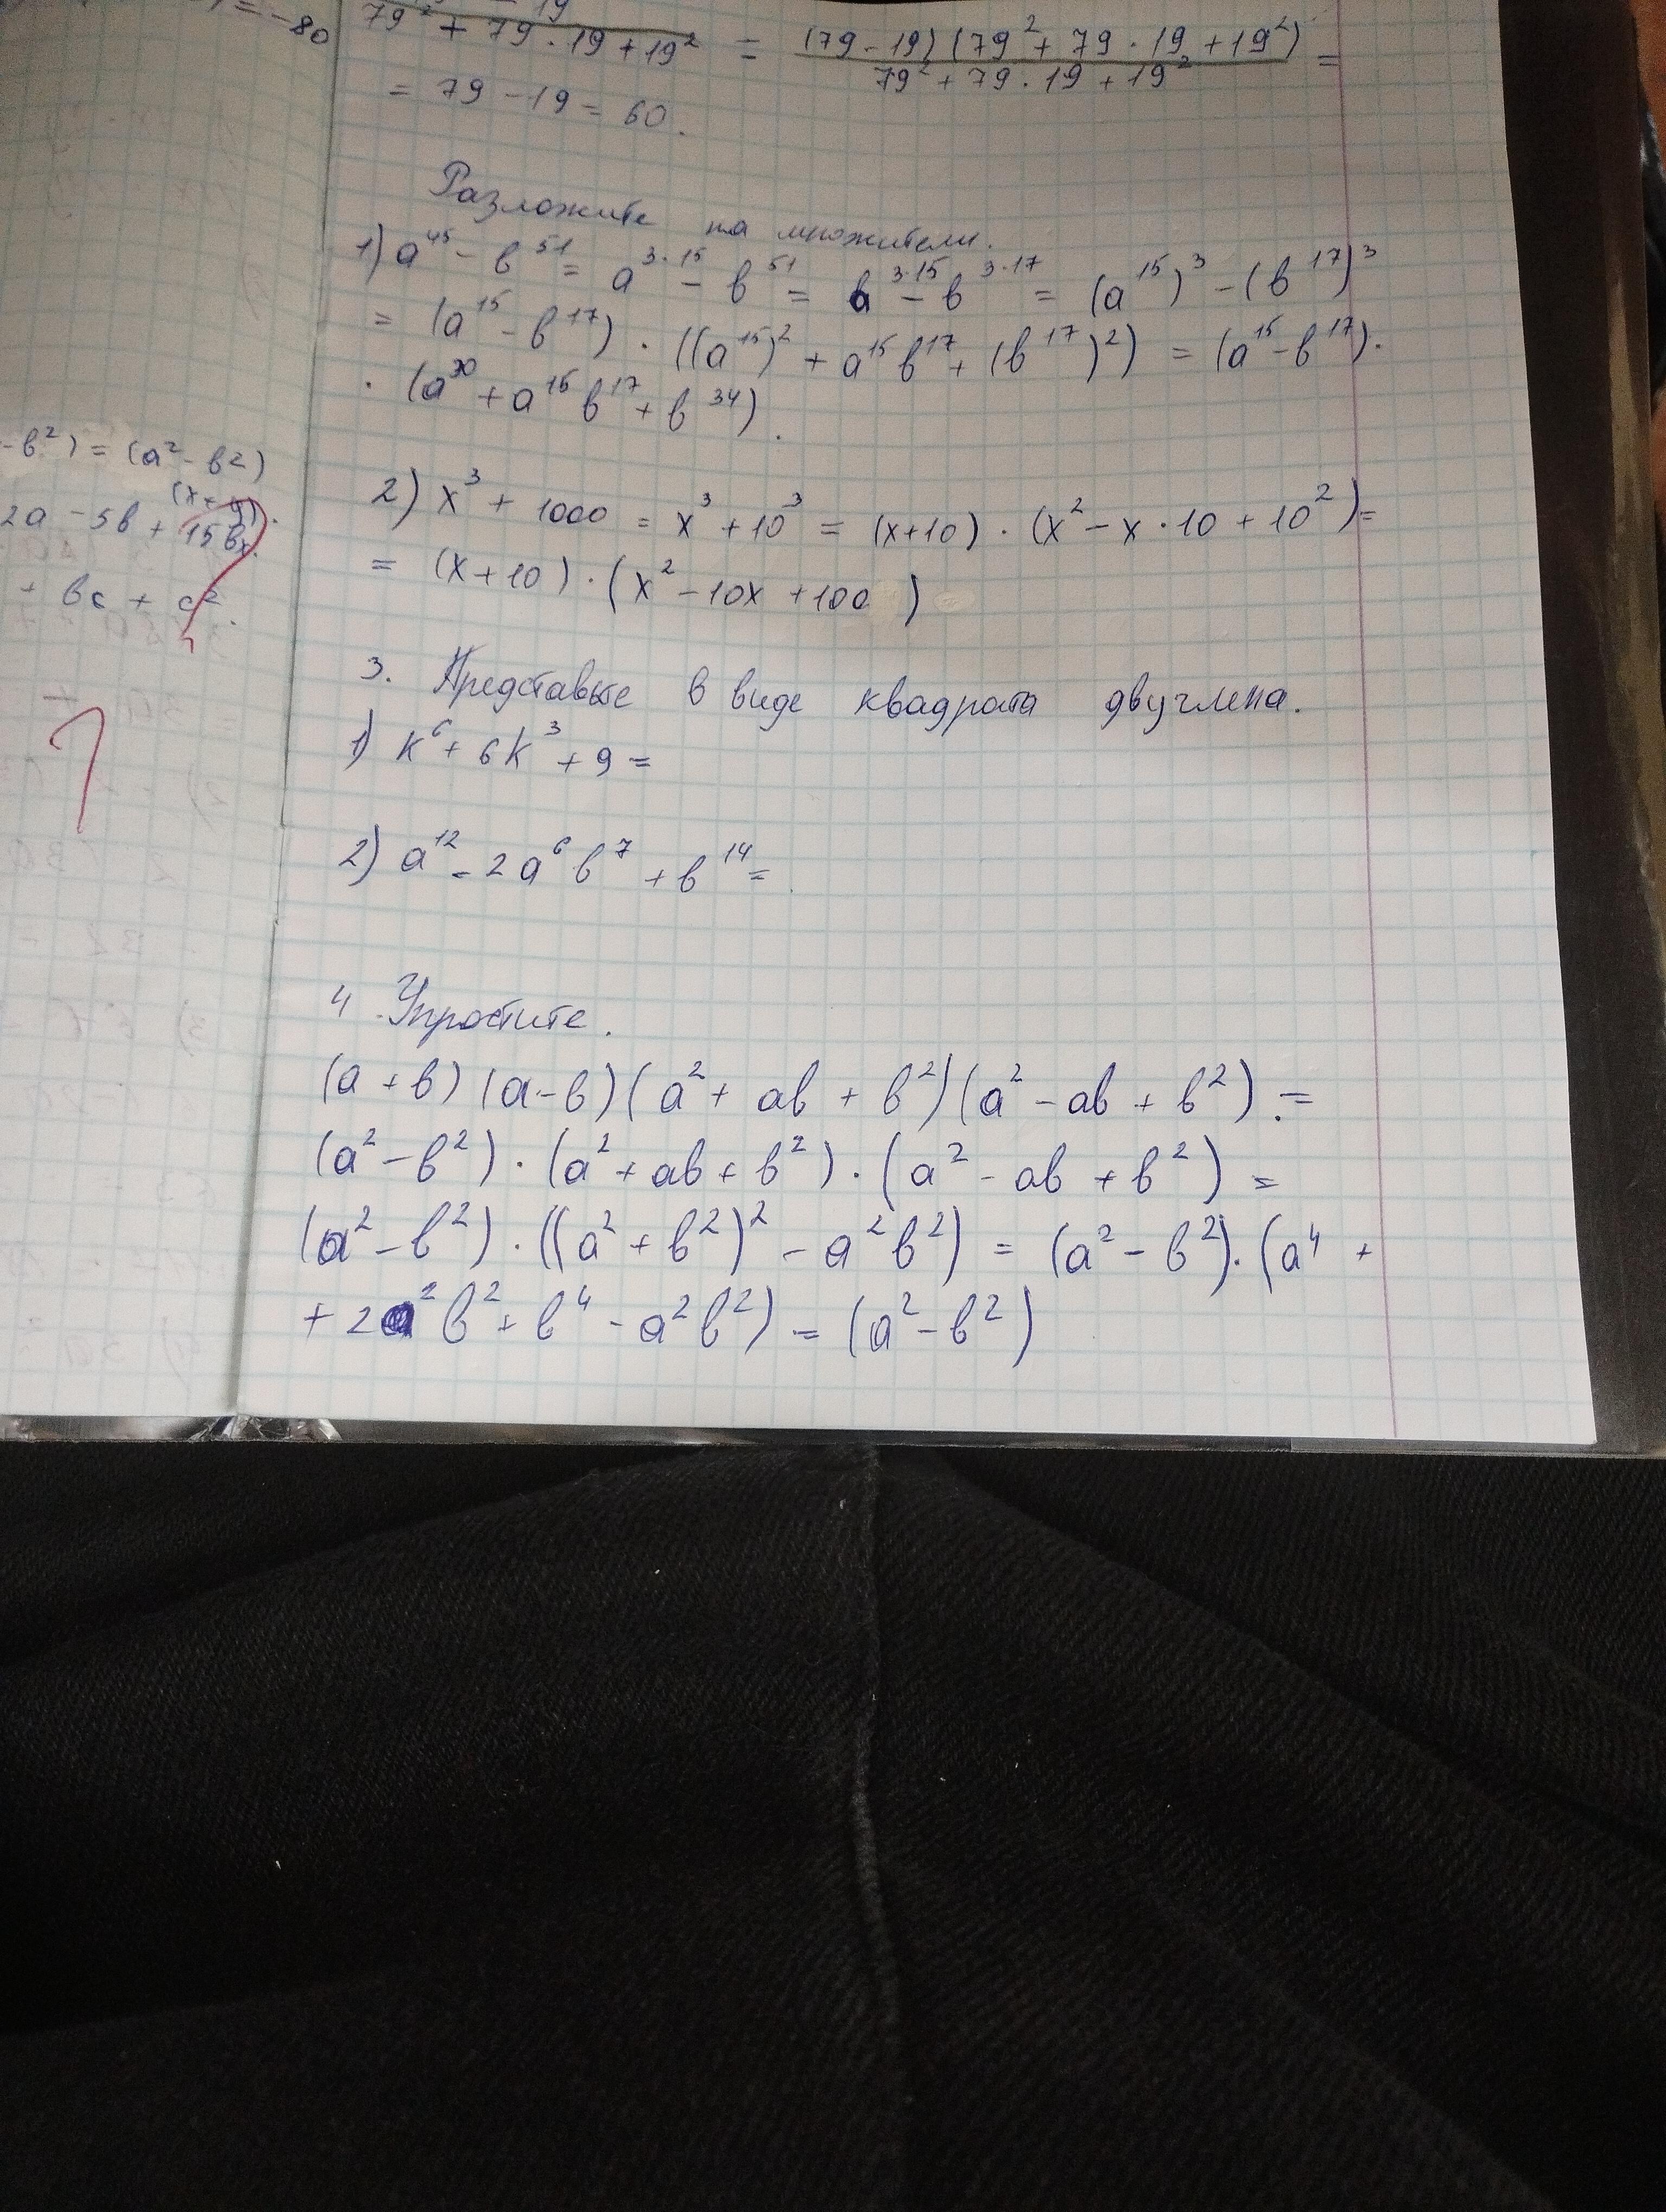 = -80
-b²) = (a² - b²)
(x+y).
2a - 5b + 15bx.
+ bc + c².
79² + 79 · 19 + 19² = (79 - 19) (79² + 79 · 19 + 19²) / 79² + 79 · 19 + 19² =
= 79 - 19 = 60.
Разложите на множители.
1) a⁴⁵ - b⁵¹ = a³·¹⁵ - b⁵¹ = a³·¹⁵ - b³·¹⁷ = (a¹⁵)³ - (b¹⁷)³
= (a¹⁵ - b¹⁷) · ((a¹⁵)² + a¹⁵b¹⁷ + (b¹⁷)²) = (a¹⁵ - b¹⁷) ·
· (a³⁰ + a¹⁵b¹⁷ + b³⁴).
2) x³ + 1000 = x³ + 10³ = (x+10) · (x² - x · 10 + 10²) =
= (x + 10) · (x² - 10x + 100)
3. Представьте в виде квадрата двучлена.
1) k⁶ + 6k³ + 9 =
2) a¹² - 2a⁶b⁷ + b¹⁴ =
4. Упростите.
(a + b) (a - b) (a² + ab + b²) (a² - ab + b²) =
(a² - b²) · (a² + ab + b²) · (a² - ab + b²) =
(a² - b²) · ((a² + b²)² - a²b²) = (a² - b²) · (a⁴ +
+ 2a²b² + b⁴ - a²b²) = (a² - b²)